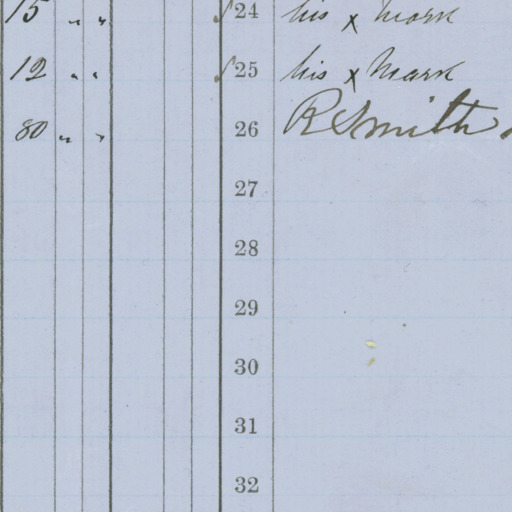 15 " " 24 his x mark
12 " " 25 his x Mark
80 " " 26 R Smith
27
28
29
30
31
32